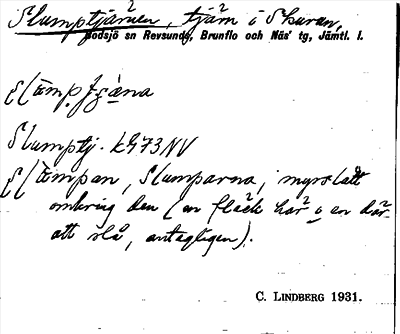 Slumptjärnen, tjärn i Skuran,
Bodsjö sn Revsunds, Brunflo och Näs' tg, Jämtl. l.
Slumptj. kG73NV
Slumparna, myrslått
omkring den (en fläck här o en där
att slå, antagligen).
C. LINDBERG 1931.